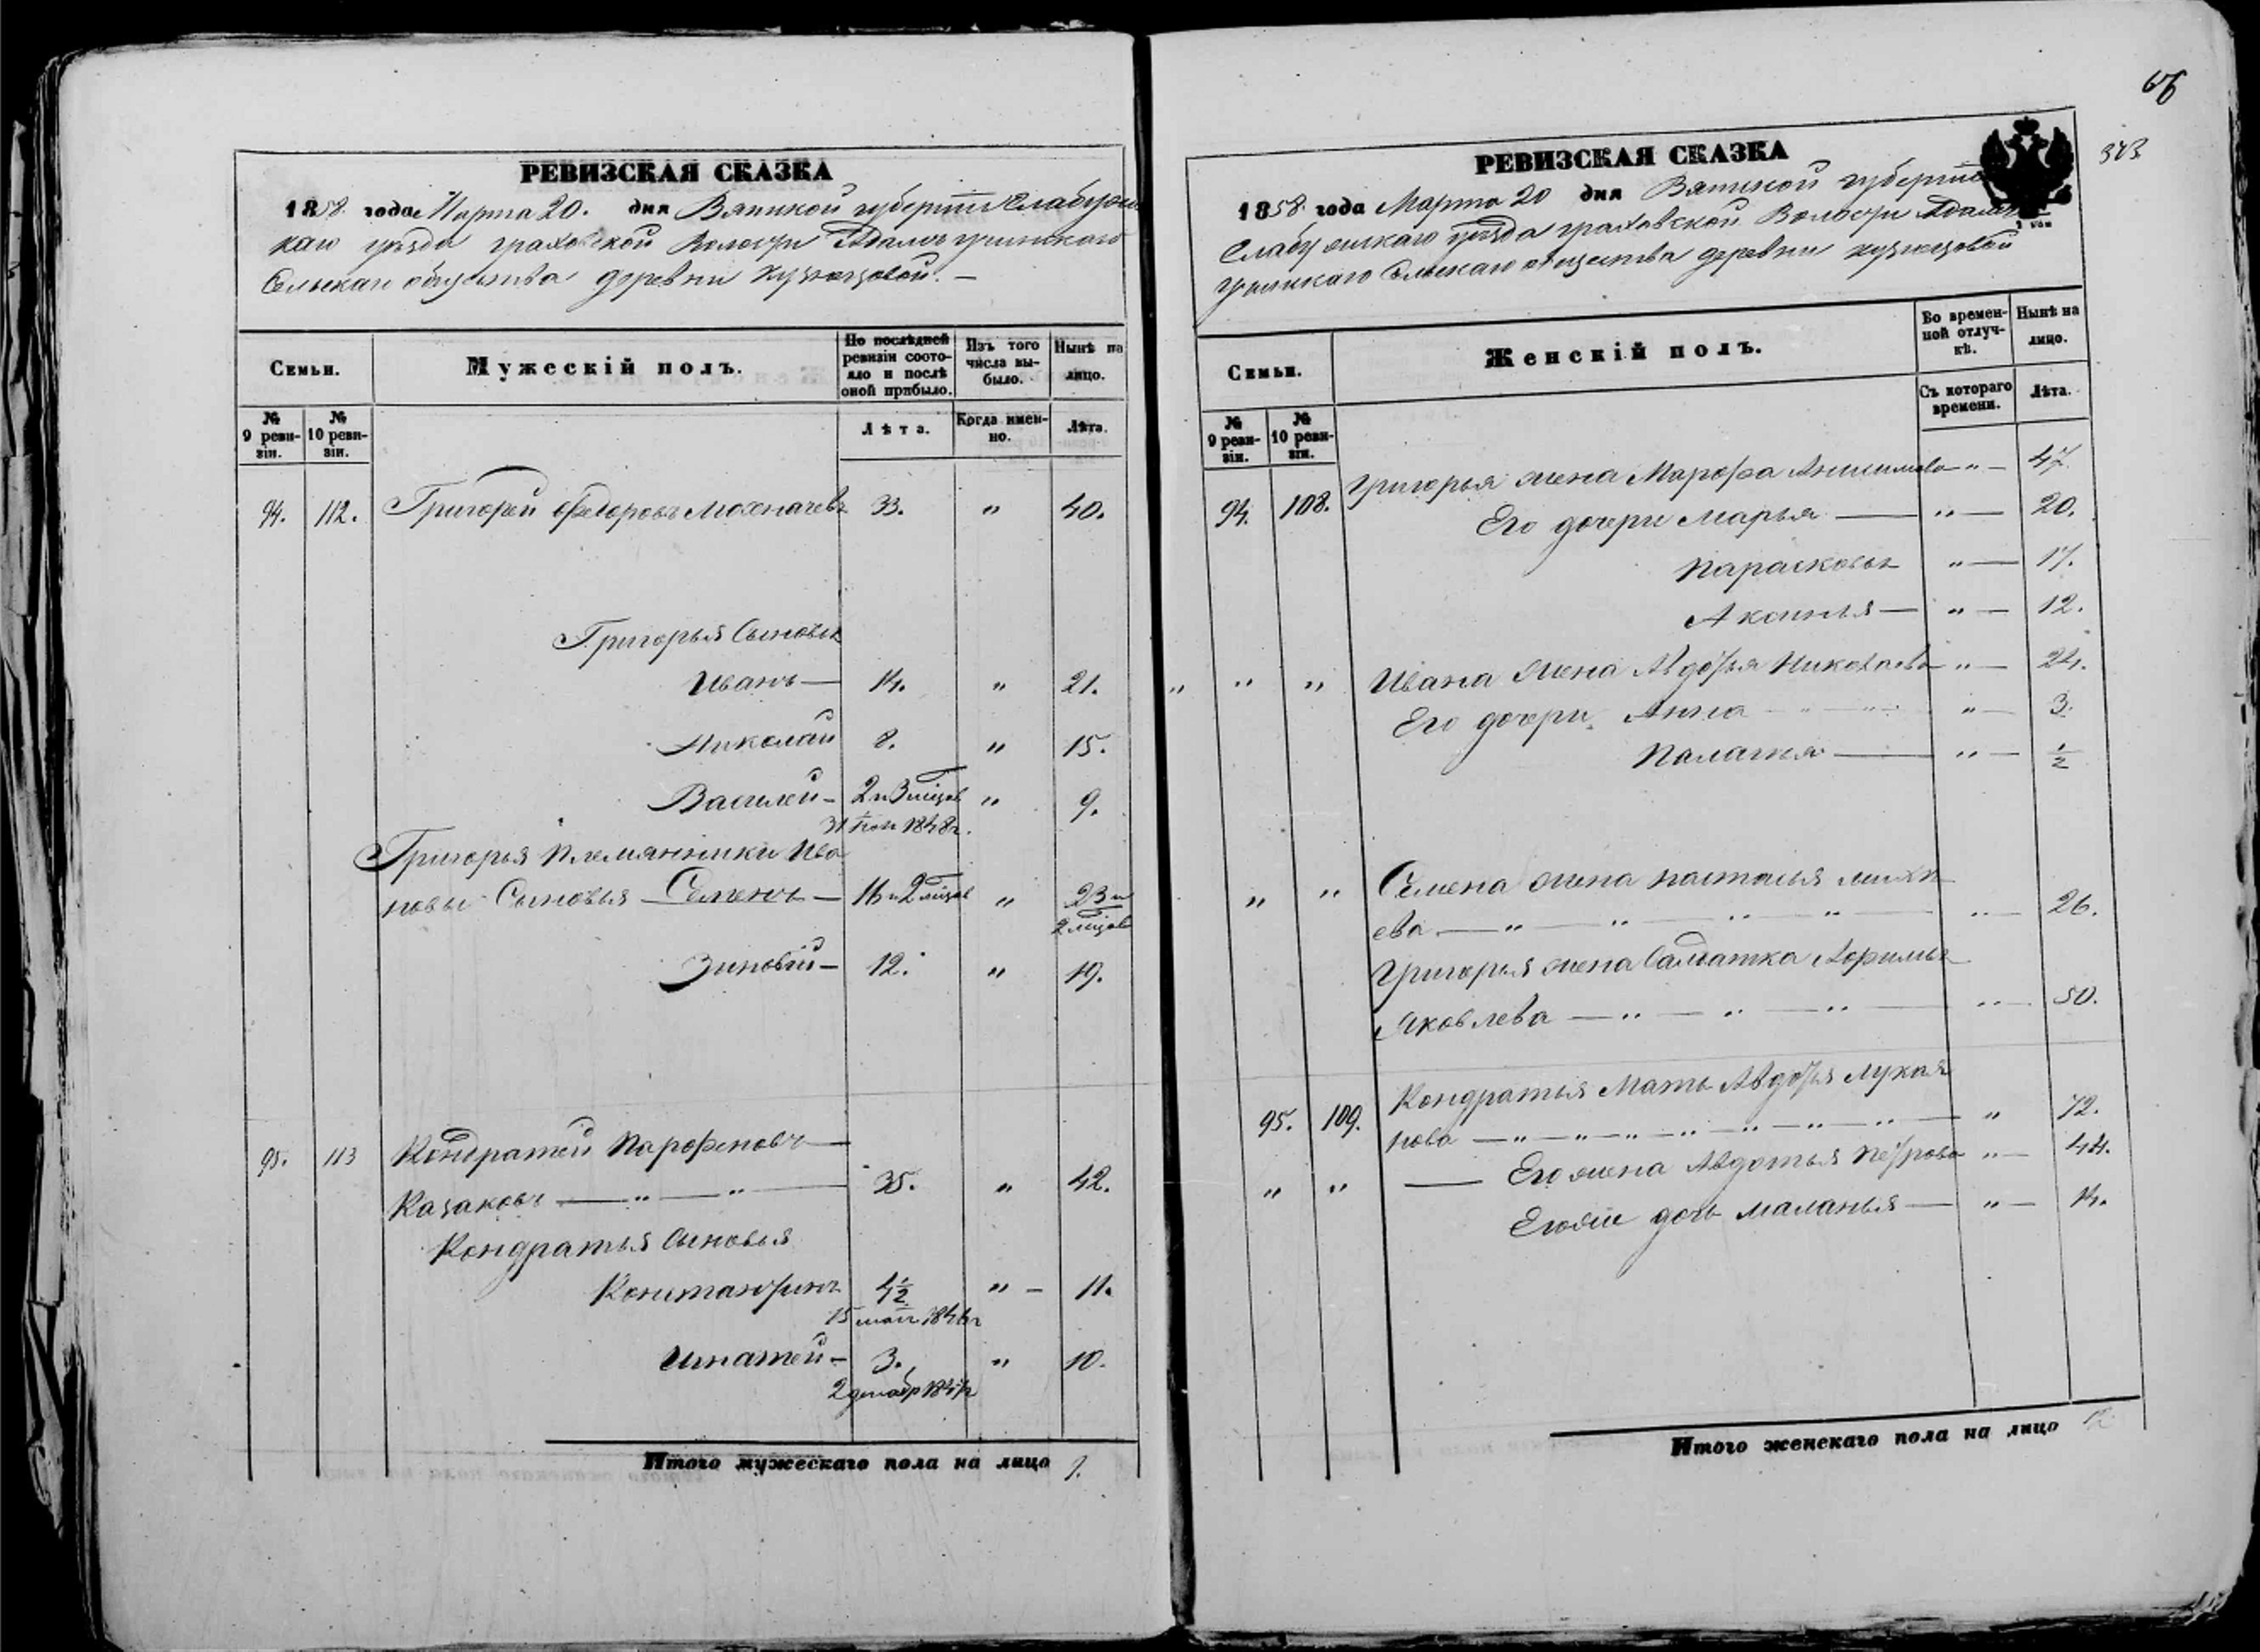 66
373
РЕВИЗСКАЯ СКАЗКА
1858 года Марта 20. дня Вятской губернии Елабужс
каго уезда Граховской Волости
Сельскаго общества деревни Кузнецовой. —
Семьи.
Мужескій полъ.
По послѣдней ревизіи состояло и послѣ оной прибыло.
Изъ того числа выбыло.
Нынѣ на лицо.
№ 9 ревизіи.
№ 10 ревизіи.
Лѣта.
Когда именно.
Лѣта.
94. 112. Григорей Федоровъ 33. " 40.
Григорья Сыновья
Иванъ — 14. " 21.
Николай 8. " 15.
Василей — 2 и 3 мѣсяцов " 9.
31 1848 г.
Григорья Племянники Ива
новы Сыновья Семенъ — 16 и 2 мѣсяцов " 23 и
2 мѣсяцов
Зиновій — 12. " 19.
95. 113 Кондратей Парфеновъ —
Казаковъ — " — " — 35. " 42.
Кондратья Сыновья
Константинъ 4½ " — 11.
15 1846 г
Игнатей — 3. " 10.
2 декабр 1847 г
Итого мужескаго пола на лицо 9.
РЕВИЗСКАЯ СКАЗКА
1858 года Марта 20 дня Вятской губерніи
Елабужскаго уезда Граховской Волости
Сельскаго общества деревни Кузнецовой
Семьи.
Женскій полъ.
Во временной отлучкѣ.
Нынѣ на лицо.
№ 9 ревизіи.
№ 10 ревизіи.
Съ котораго времени.
Лѣта.
94. 108. Григорья жена Марфа Анисимова " — 47.
Его дочери Марья — " — 20.
Парасковья " — 17.
Аксинья — " — 12.
" " " Ивана жена Авдотья Николаева " — 24.
Его дочери Анна " — 3.
Палагия — " — ½
" " Семена жена Настасья Михе
ева — " — " — " — 26.
Григорья жена Салдатка Афимья
Яковлева — " — " — " — 50.
95. 109. Кондратья Мать Авдотья Лукоя
нова — " — " — " — " — " — " — " — " 72.
" " — Его жена Авдотья Петрова " — 44.
Егоже дочь Маланья — " — 14.
Итого женскаго пола на лицо 12